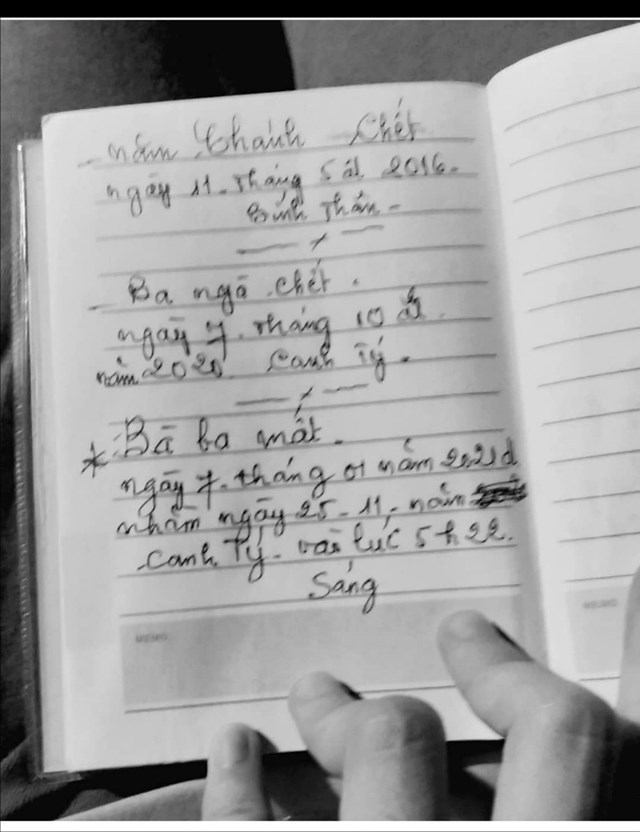 - năm thánh chết
ngày 11. tháng 5 âl 2016.
Bính Thân -
- Ba ngã chết.
ngày 7. tháng 10 âl.
năm 2020 Canh Tý.
* Bà ba mất.
ngày 7. tháng 01 năm 2021 d
nhằm ngày 25 - 11 - năm
Canh Tý - vào lúc 5 h 22.
Sáng
MEMO